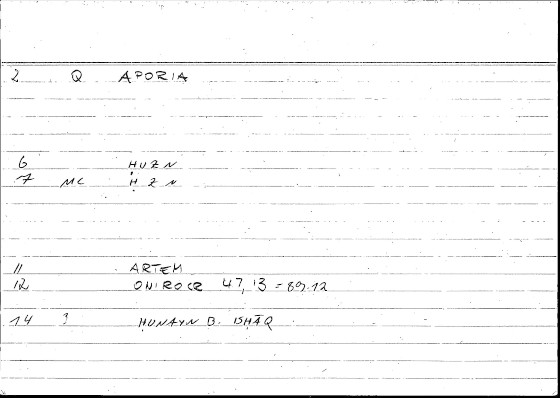 2 Q APORIA
6 ḤUZN
7 MC ḤZN
11 ARTEM
12 ONIROCR 47,13 = 89.12
14 3 ḤUNAYN B. ISḤĀQ